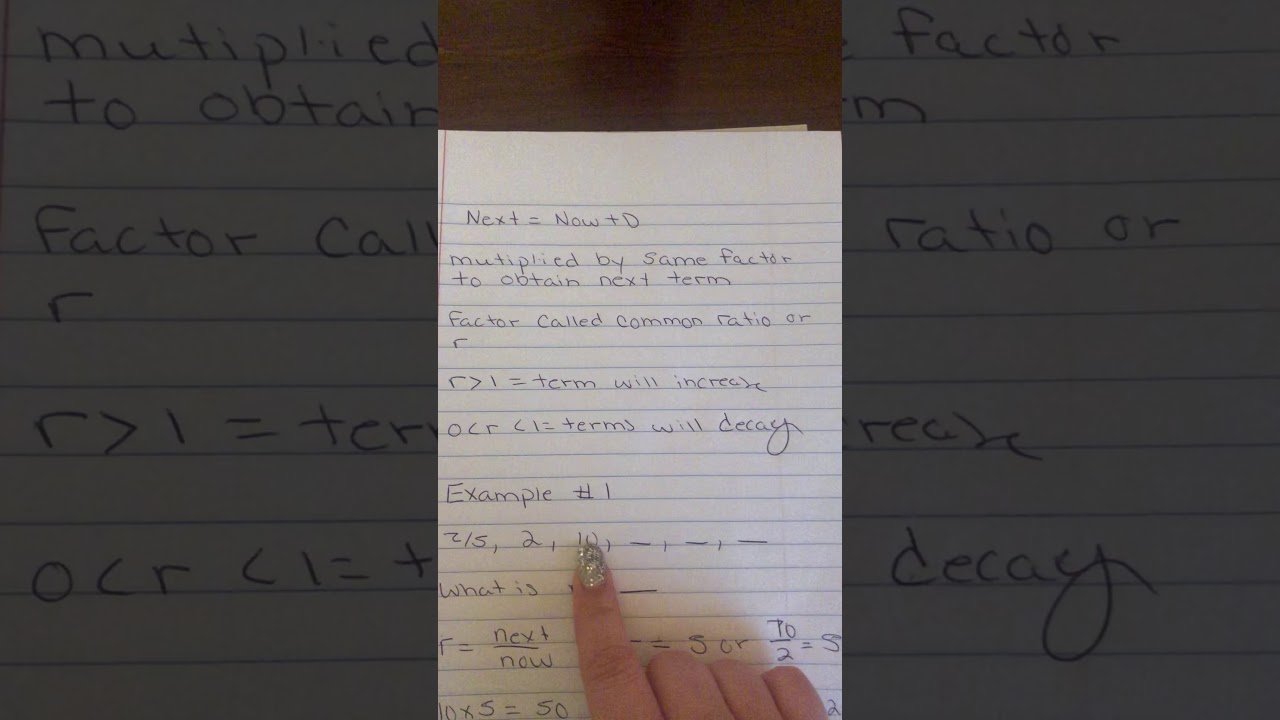 Next = Now + D
mutiplied by same factor
to obtain next term
Factor called common ratio or
r
r > 1 = term will increase
0 < r < 1 = terms will decay
Example #1
2/5, 2, 10, —, —, —
What is —
r = next/now = 5 or 10/2 = 5
10 x 5 = 50 2